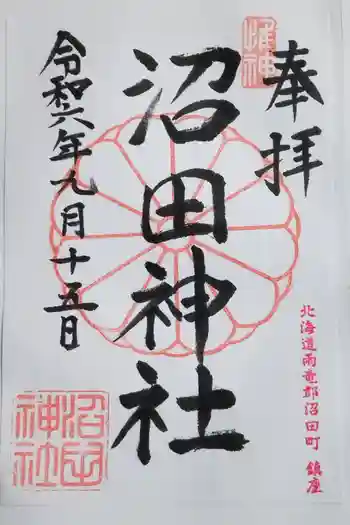 奉拝
沼田神社
令和六年九月十五日
北海道雨竜郡沼田町 鎮座
沼田
神社